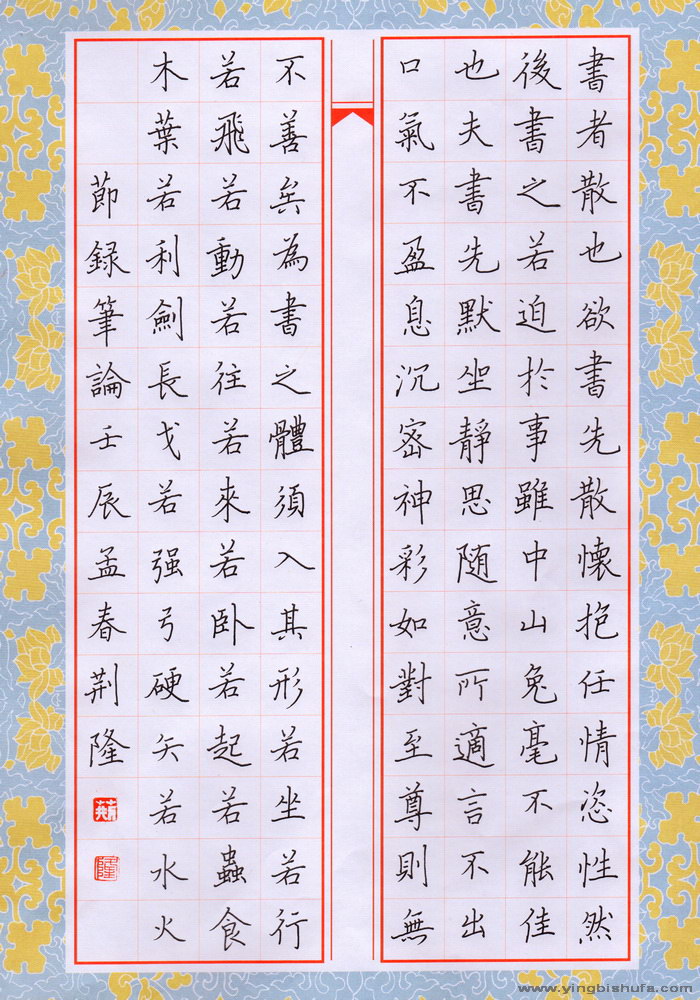 書者散也欲書先散懷抱任情恣性然
後書之若迫於事雖中山兔毫不能佳
也夫書先默坐靜思随意所適言不出
口氣不盈息沉密神彩如對至尊則無
不善矣為書之體須入其形若坐若行
若飛若動若往若來若卧若起若蟲食
木葉若利劍長戈若强弓硬矢若水火
節録筆論壬辰孟春荆隆
www.yingbishufa.com